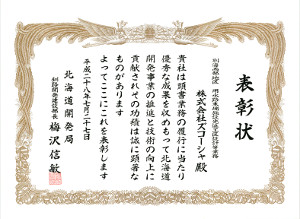 表彰状
株式会社ズコーシャ殿
貴社は頭書業務の履行に当たり
優秀な成果を収めもって北海道
開発事業の推進と技術の向上に
貢献されその功績は誠に顕著な
ものがあります
よってここにこれを表彰します
平成二十八年七月二十七日
北海道開発局
釧路開発建設部長 梅沢信敏